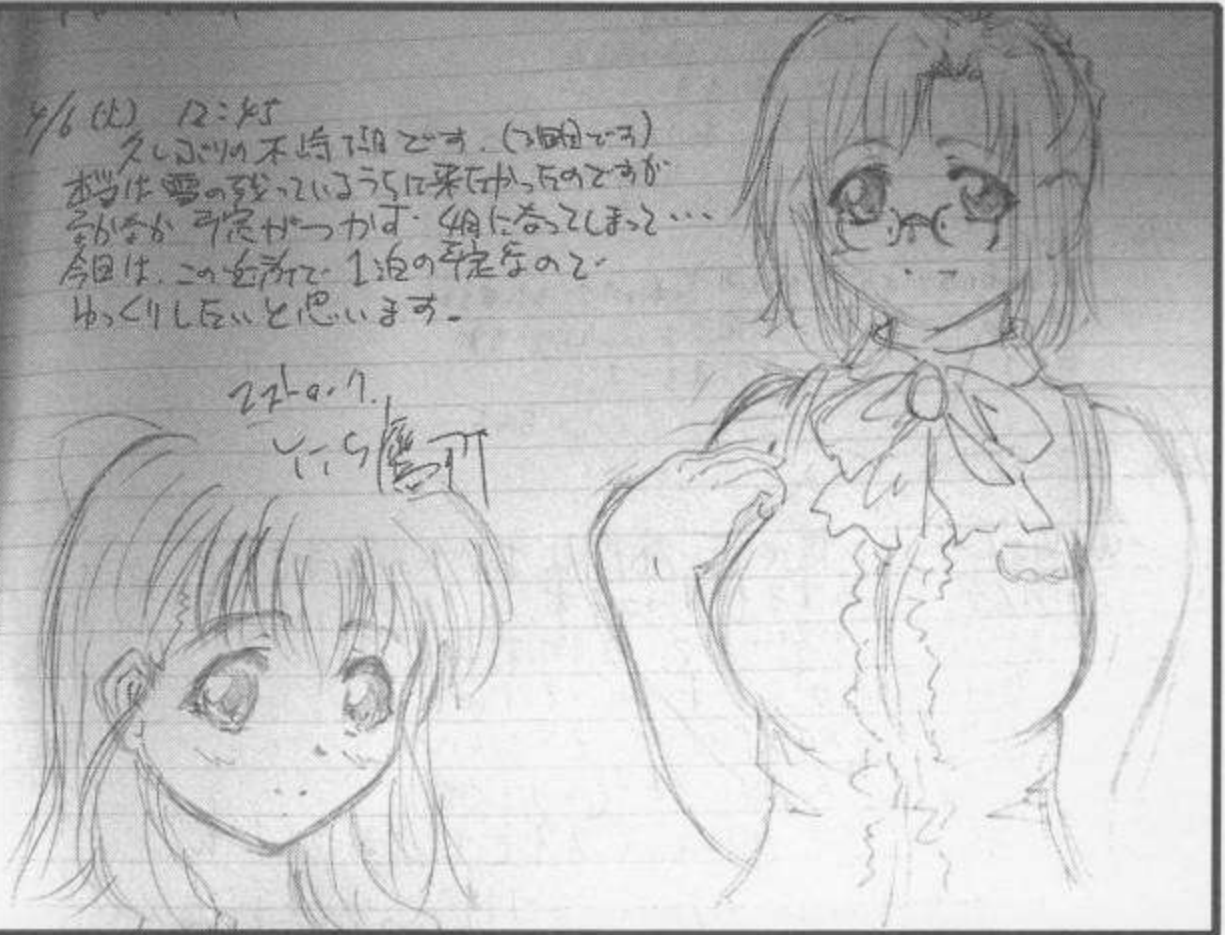 4/6 (火) 12:45
久しぶりの木崎湖です。(3回目です)
本当は雪の残っているうちに来たかったのですが
なかなか予定がつかず、4月になってしまって…
今日は、この近所で1泊の予定なので
ゆっくりしたいと思います。